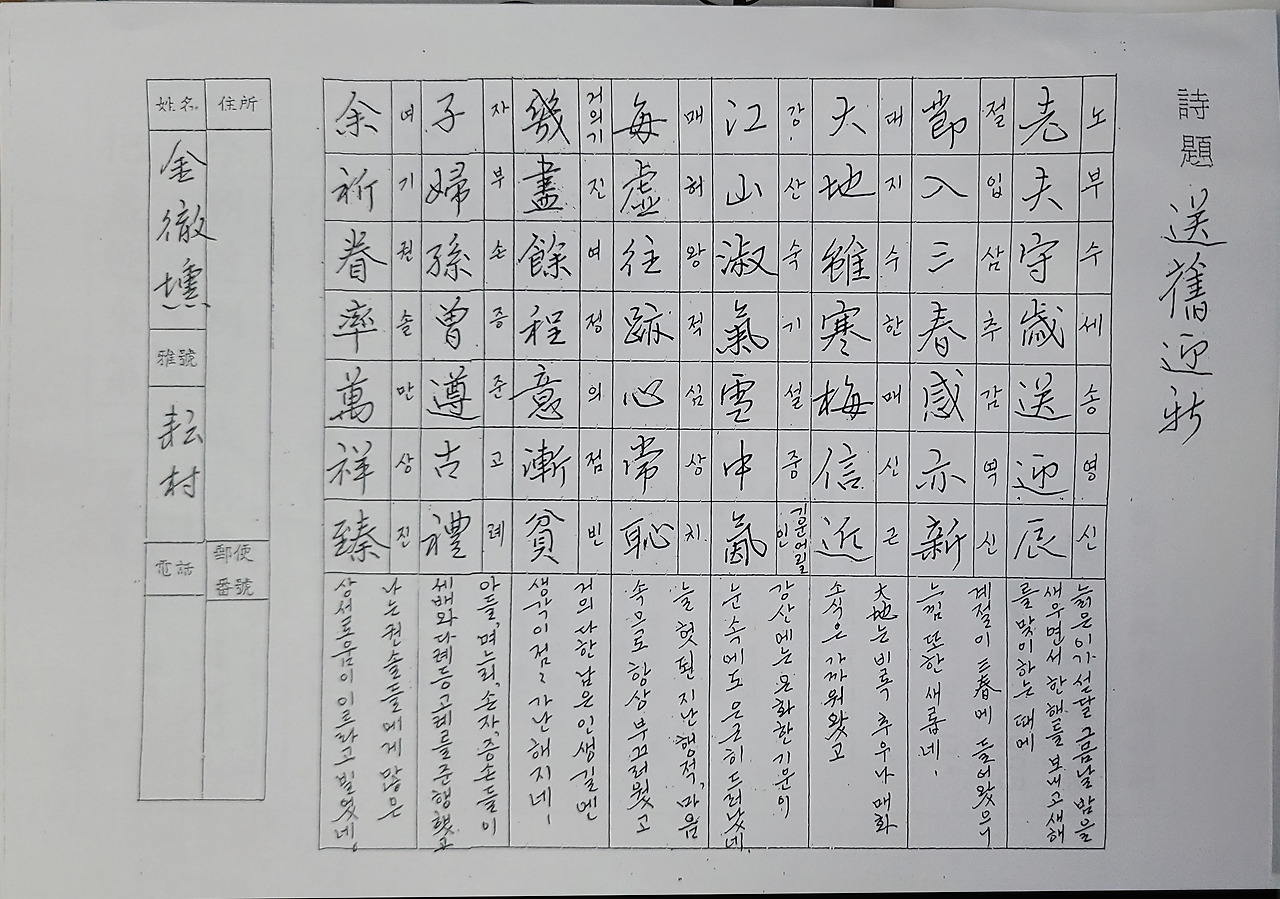 詩題 送舊迎新
老夫守歲送迎辰
노부수세송영신
늙은이가 섣달 금음날 밤을
새우면서 한해를 보내고 새해
를 맞이하는 때에
節入三春感亦新
절입삼추감역신
계절이 三春에 들어왔으니
느낌 또한 새롭네.
大地雖寒梅信近
대지수한매신근
大地는 비록 추우나 매화
소식은 가까워왔고
江山淑氣雪中氤
강산숙기설중기운어릴인
강산에는 온화한 기운이
눈 속에도 은근히 드러났네.
每虛往跡心常恥
매허왕적심상치
늘 헛된 지난 행적, 마음
속으로 항상 부끄러웠고
幾盡餘程意漸貧
거의기진여정의점빈
거의 다한 남은 인생길엔
생각이 점점 가난해지네.
子婦孫曾遵古禮
자부손증준고례
아들, 며느리, 손자, 증손들이
세배와 다례등 고례를 준행했고
余祈眷率萬祥臻
여기권솔만상진
나는 권솔들에게 많은
상서로움이 이르라고 빌었네.
住所
郵便番號
姓名 金徹壎
雅號 耘村
電話